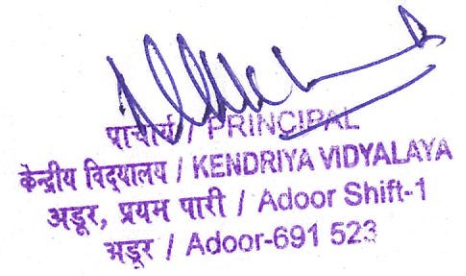 प्राचार्य / PRINCIPAL
केन्द्रीय विद्यालय / KENDRIYA VIDYALAYA
अडूर, प्रथम पारी / Adoor Shift-1
अडूर / Adoor-691 523